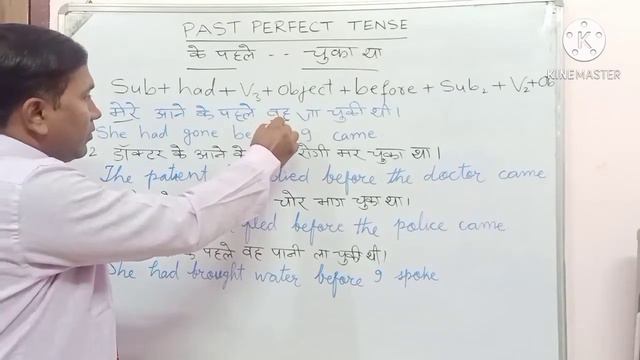 PAST PERFECT TENSE
के पहले -- चुका था
KINEMASTER
Sub + had + V3 + object + before + Sub2 + V2 + Ob
मेरे आने के पहले वह जा चुकी थी।
She had gone 9 came
2 डॉक्टर के आने के रोगी मर चुका था।
The patient died before the doctor came
चोर भाग चुका था।
before the police came
पहले वह पानी ला चुकी थी।
She had brought water before 9 spoke